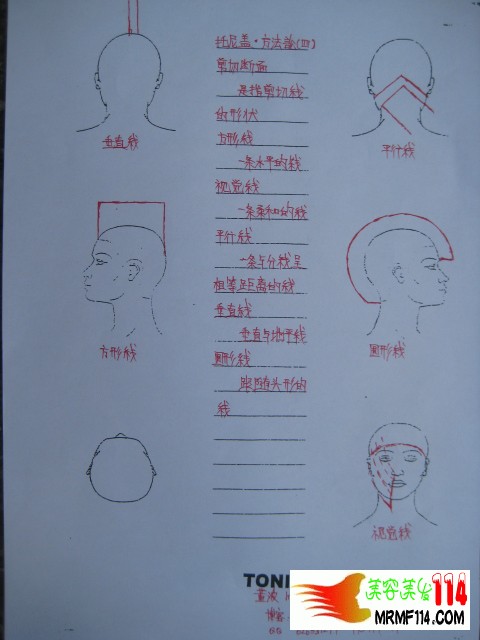 托尼盖·方法论(四)
剪切断面
是指剪切线
的形状
方形线
一条水平的线
视觉线
一条柔和的线
平行线
一条与分线呈
相等距离的线
垂直线
垂直与地平线
圆形线
跟随头形的
线
垂直线
平行线
方形线
圆形线
视觉线
TONI
美容美发114
MRMF114.COM